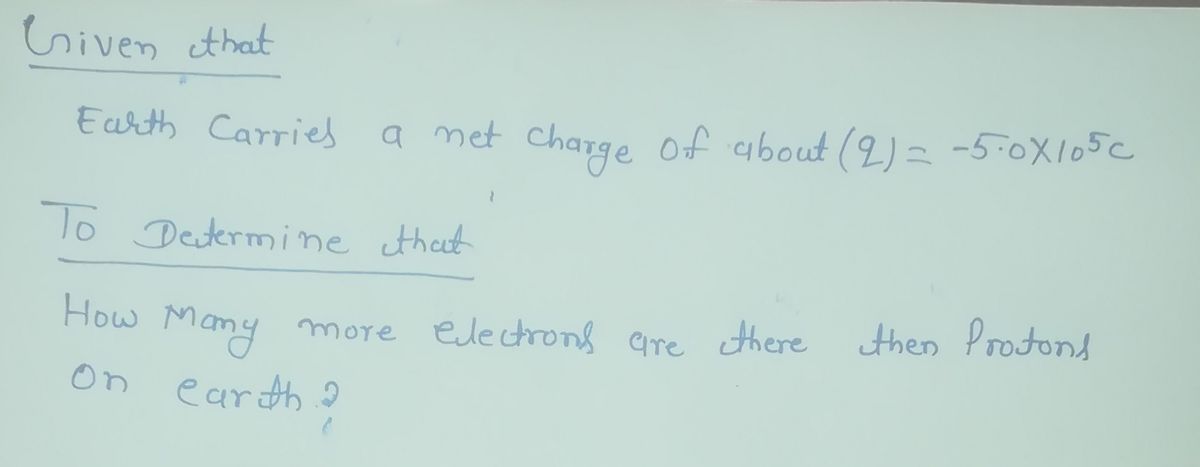 Given that
Earth Carries a net charge of about (q) = -5.0X10⁵c
To Determine that
How Many more electrons are there then Protons
On earth ?